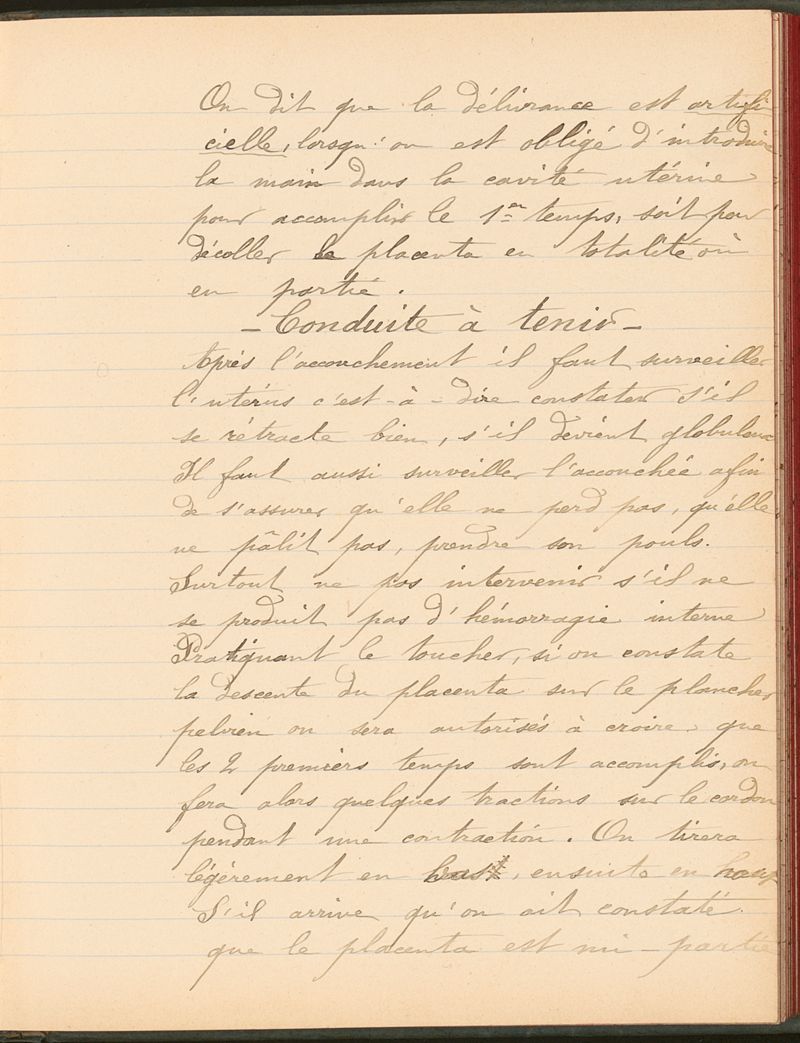 On dit que la délivrance est artifi-
cielle, lorsqu'on est obligé d'introduire
la main dans la cavité utérine
pour accomplir le 1er temps, soit pour
décoller le placenta en totalité où
en partie.
- Conduite à tenir -
Après l'accouchement il faut surveiller
l'utérus c'est-à-dire constater s'il
se rétracte bien, s'il devient globuleux
Il faut aussi surveiller l'accouchée afin
de s'assurer qu'elle ne perd pas, qu'elle
ne pâlit pas, prendre son pouls.
Surtout ne pas intervenir s'il ne
se produit pas d'hémorragie interne
Pratiquant le toucher, si on constate
la descente du placenta sur le plancher
pelvien on sera autorisés à croire que
les 2 premiers temps sont accomplis, on
fera alors quelques tractions sur le cordon
pendant une contraction. On tirera
légèrement en bas, ensuite en haut
S'il arrive qu'on ait constaté
que le placenta est mi-partie